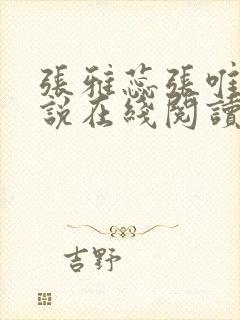 張雅蕊張唯
說在綫閱讀
吉野